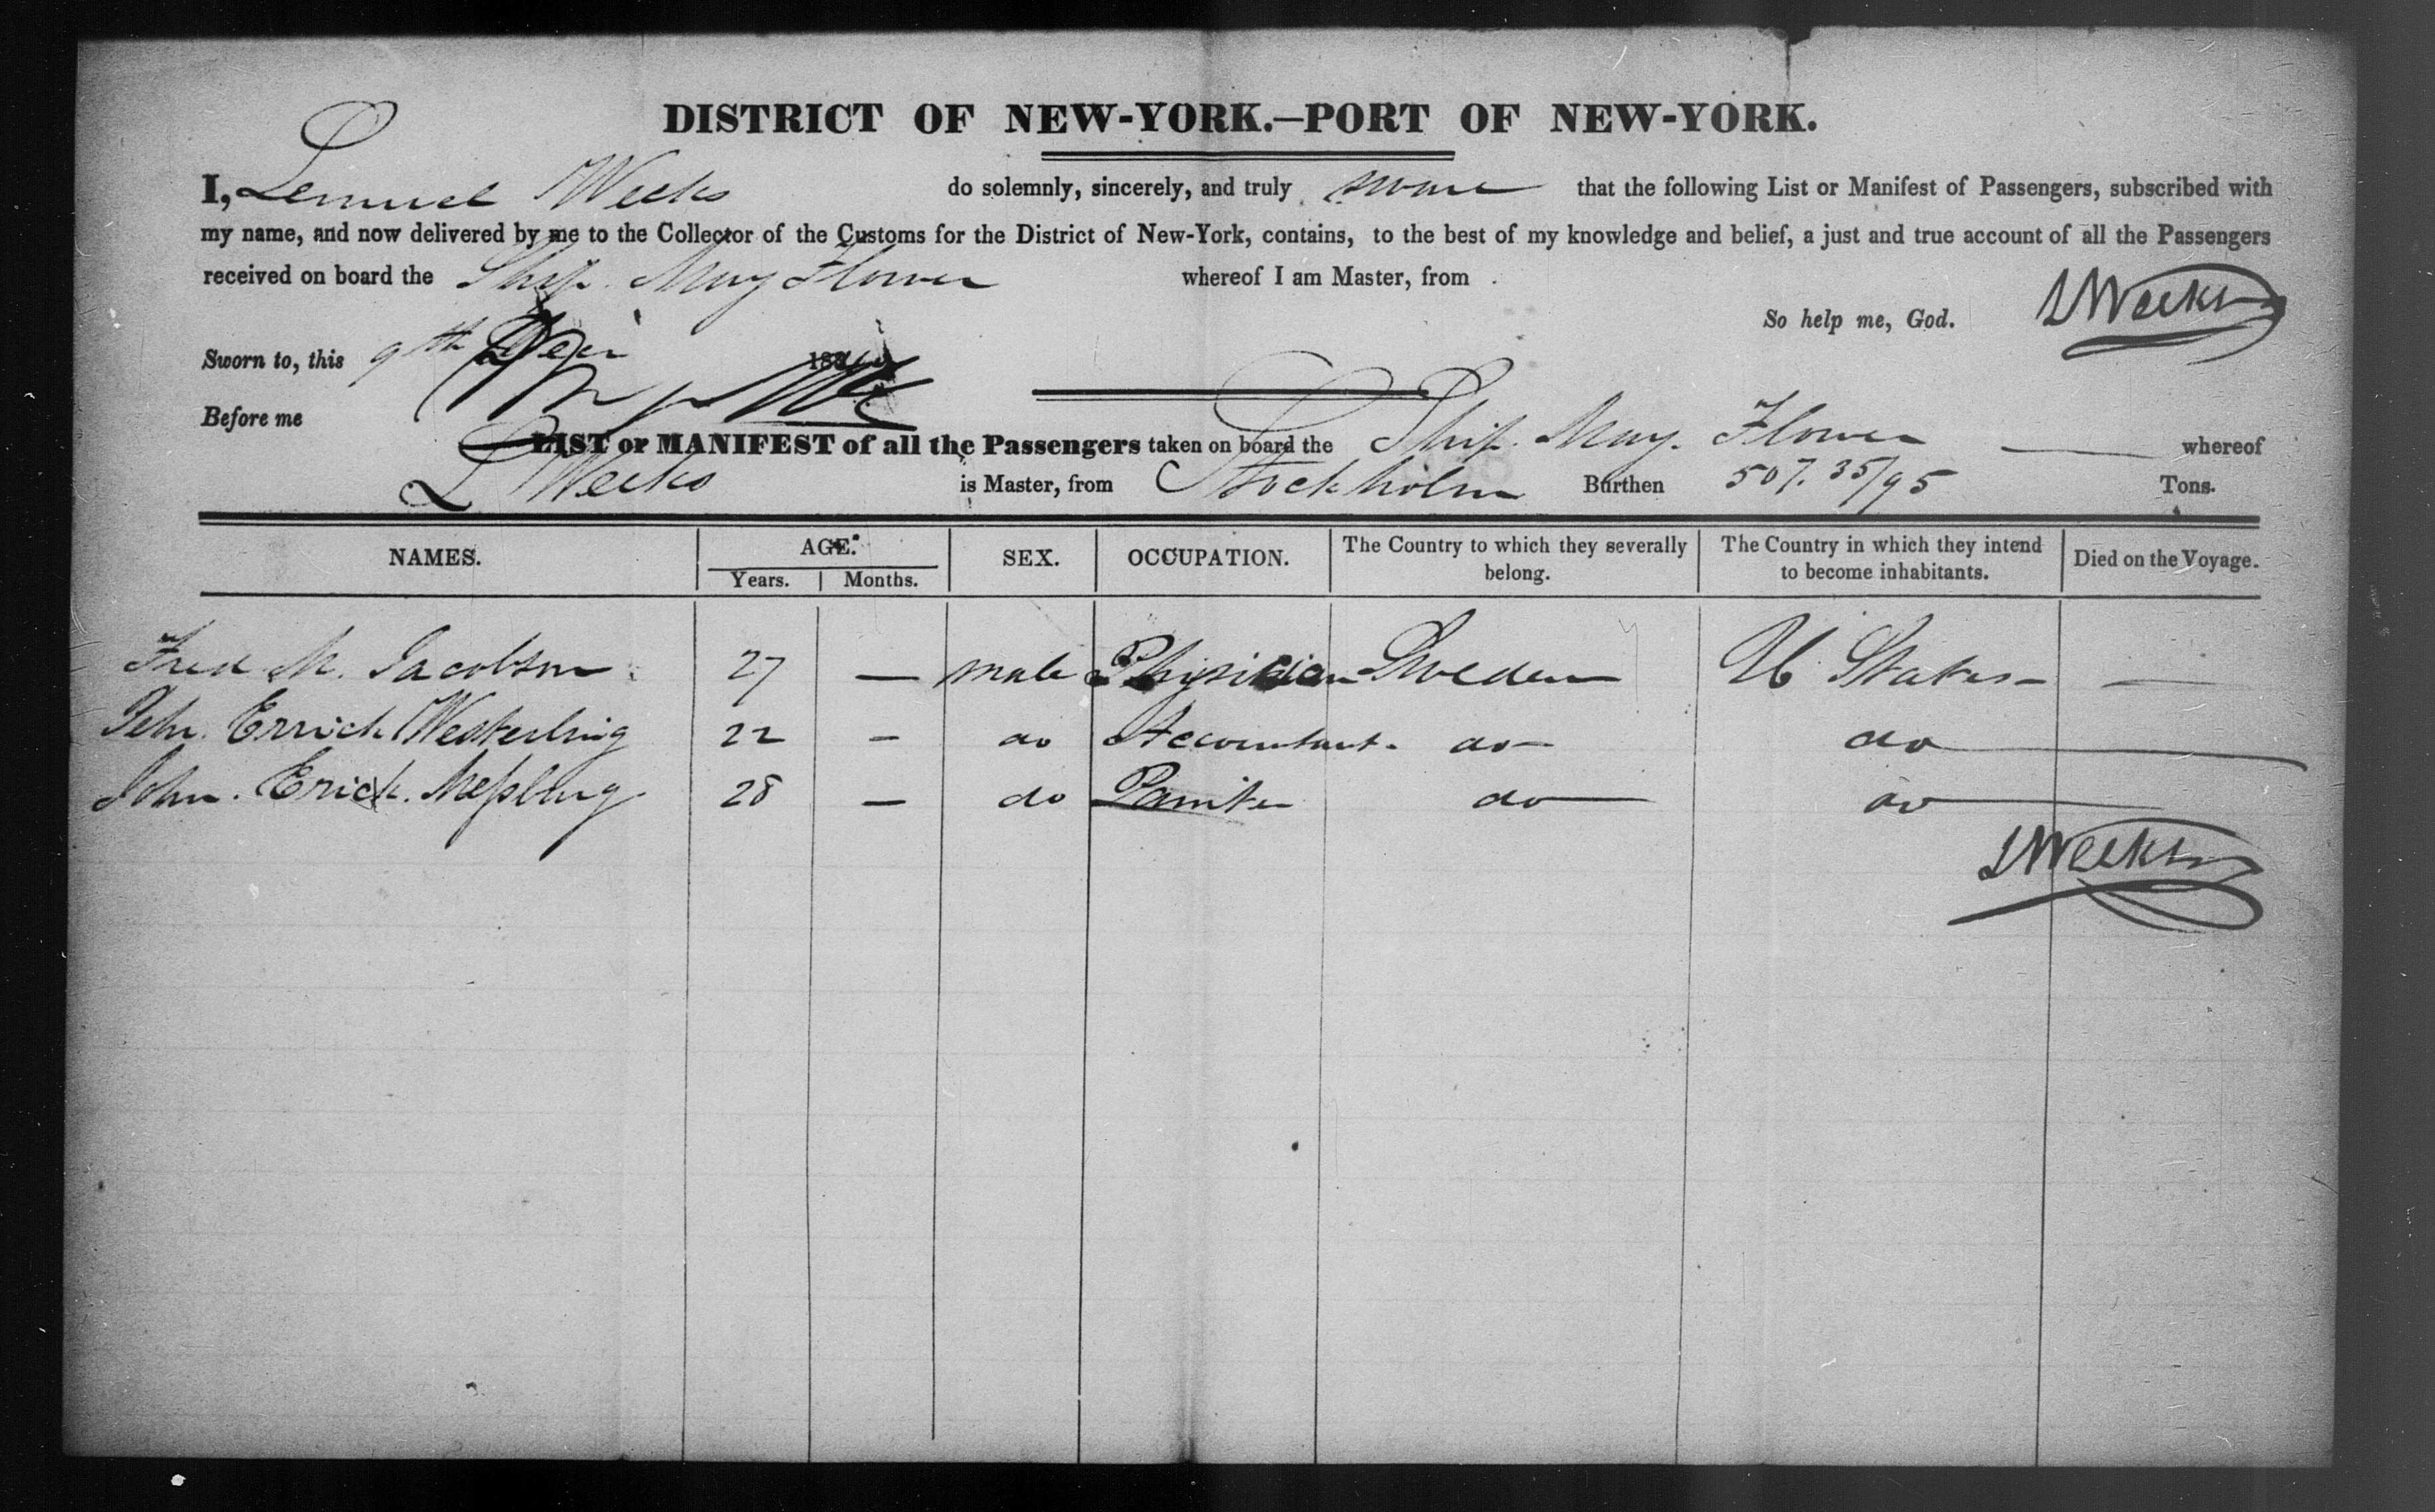 DISTRICT OF NEW-YORK.—PORT OF NEW-YORK.
I, Lemuel Weeks do solemnly, sincerely, and truly swear that the following List or Manifest of Passengers, subscribed with
my name, and now delivered by me to the Collector of the Customs for the District of New-York, contains, to the best of my knowledge and belief, a just and true account of all the Passengers
received on board the Ship. May Flower whereof I am Master, from
So help me, God. L Weeks
Sworn to, this 9th 183
Before me
LIST or MANIFEST of all the Passengers taken on board the Ship. May. Flower whereof
L Weeks is Master, from Stockholm Burthen 507. 35/95 Tons.
NAMES. AGE. SEX. OCCUPATION. The Country to which they severally belong. The Country in which they intend to become inhabitants. Died on the Voyage.
Years. Months.
Fred M. Jacobson 27 — male Physician Sweden U States —
John. Errick Westerling 22 — do Accountant. do do
John. Erick. 28 — do do do
L Weeks